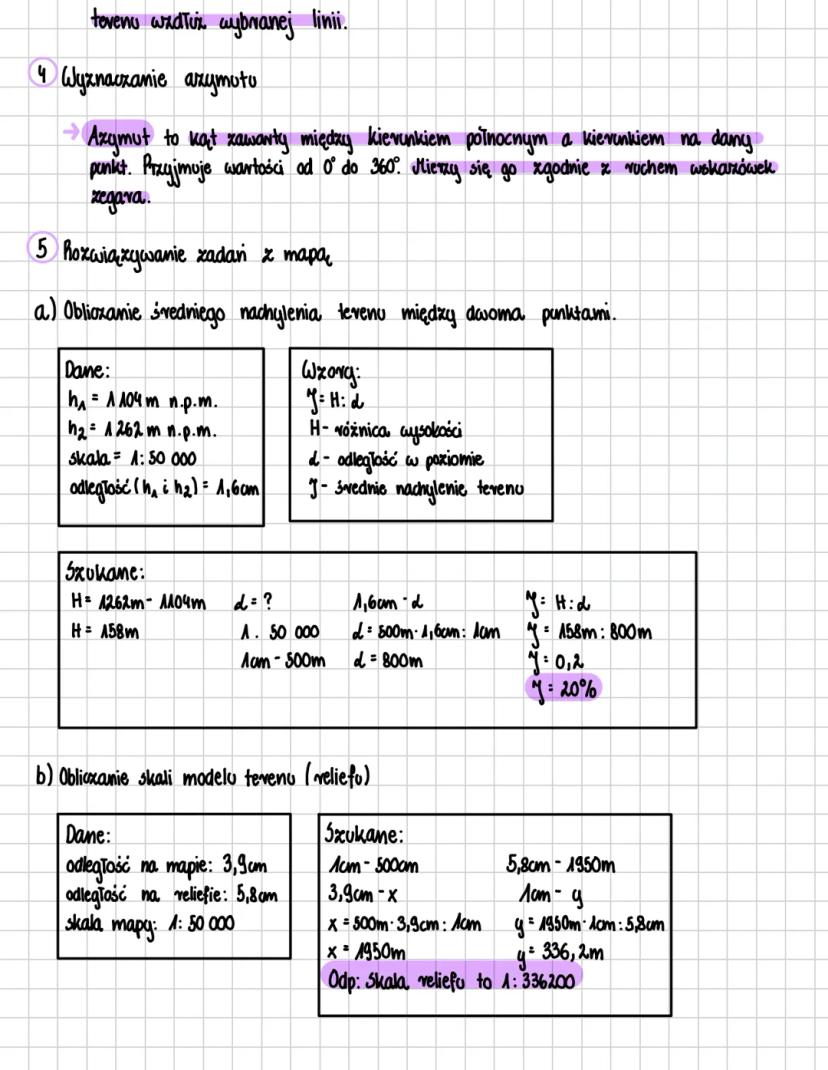 terenu wzdłuż wybranej linii.
4 Wyznaczanie azymutu
→ Azymut to kąt zawarty między kierunkiem północnym a kierunkiem na dany
punkt. Przyjmuje wartości od 0° do 360°. Mierzy się go zgodnie z ruchem wskazówek
zegara.
5 Rozwiązywanie zadań z mapą
a) Obliczanie średniego nachylenia terenu między dwoma punktami.
Dane:
h₁ = 1 104 m n.p.m.
h₂ = 1 262 m n.p.m.
skala = 1: 50 000
odległość (h₁ i h₂) = 1,6cm
Wzory:
J = H: d
H - różnica wysokości
d - odległość w poziomie
J - średnie nachylenie terenu
Szukane:
H = 1262m - 1104m
H = 158m
d = ?
1 . 50 000
1cm - 500m
1,6cm - d
d = 500m · 1,6cm : 1cm
d = 800m
J = H : d
J = 158m : 800m
J = 0,2
J = 20%
b) Obliczanie skali modelu terenu (reliefu)
Dane:
odległość na mapie: 3,9cm
odległość na reliefie: 5,8cm
skala mapy: 1: 50 000
Szukane:
1cm - 500cm
3,9cm - x
x = 500m · 3,9cm : 1cm
x = 1950m
5,8cm - 1950m
1cm - y
y = 1950m · 1cm : 5,8cm
y = 336,2m
Odp: Skala reliefu to 1: 336200